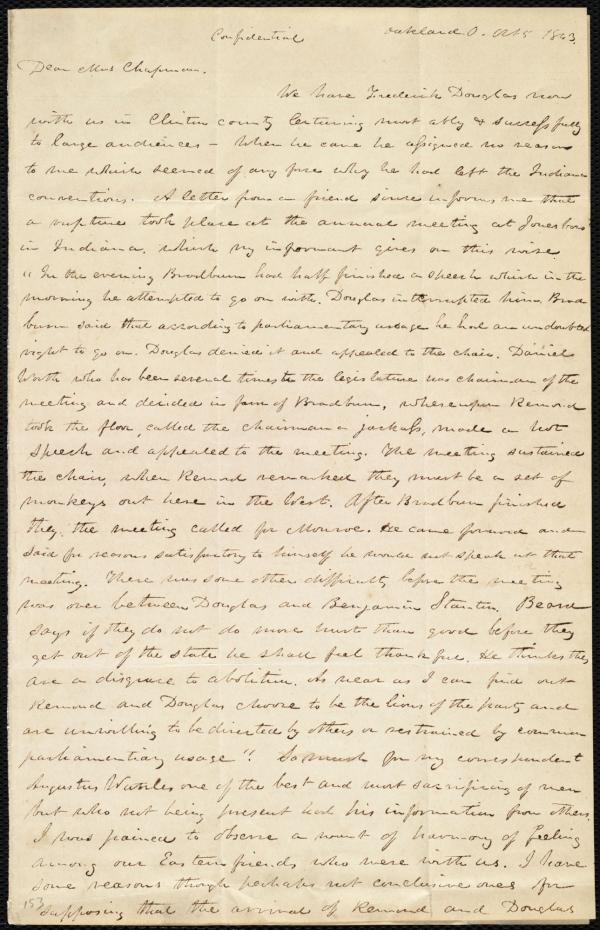 Confidential
Oakland O. Oct 5 1843.
Dear Mrs Chapman.
We have Frederick Douglas now
with us in Clinton county lecturing most ably & successfully
to large audiences – When he came he assigned no reason
to me which seemed of any force why he had left the Indiana
conventions. A letter from a friend since informs me that
a rupture took place at the annual meeting at Jonesboro'
in Indiana, which my informant gives on this wise
"In the evening Bradburn had half finished a speech which in the
morning he attempted to go on with. Douglas interrupted him. Brad
burn said that according to parliamentary usage he had an undoubted
right to go on. Douglas denied it and appealed to the chair. Daniel
Worth who has been several times in the legislature was chairman of the
meeting and decided in favor of Bradburn, whereupon Remond
took the floor, called the chairman a jackass, made a hot
speech and appealed to the meeting. The meeting sustained
the chair, when Remond remarked they must be a set of
monkeys out here in the West. After Bradburn finished
they, the meeting called for Monroe. He came forward and
said for reasons satisfactory to himself he would not speak at that
meeting. There was some other difficulty before the meeting
was over between Douglas and Benjamin Stanton. Beard
says if they do not do more hurt than good before they
get out of the state he shall feel thankful. He thinks they
are a disgrace to abolition. As near as I can find out
Remond and Douglas choose to be the lions of the party and
are unwilling to be directed by others or restrained by common
parliamentary usage". So much for my correspondent
Augustus Wattles one of the best and most sacrificing of men
but who not being present had his information from others.
I was pained to observe a want of harmony of feeling
among our Eastern friends who were with us. I have
some reasons though perhaps not conclusive ones for
supposing that the arrival of Remond and Douglas
153